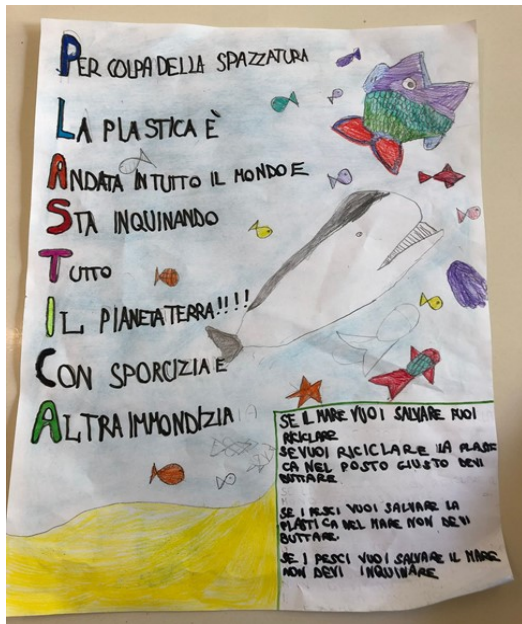 PER COLPA DELLA SPAZZATURA
LA PLASTICA È
ANDATA IN TUTTO IL MONDO E
STA INQUINANDO
TUTTO
IL PIANETA TERRA!!!!
CON SPORCIZIA E
ALTRA IMMONDIZIA
SE IL MARE VUOI SALVARE PUOI
RICICLARE
SE VUOI RICICLARE LA PLASTI
CA NEL POSTO GIUSTO DEVI
BUTTARE
SE I PESCI VUOI SALVARE LA
PLASTICA NEL MARE NON DEVI
BUTTARE.
SE I PESCI VUOI SALVARE IL MARE
NON DEVI INQUINARE